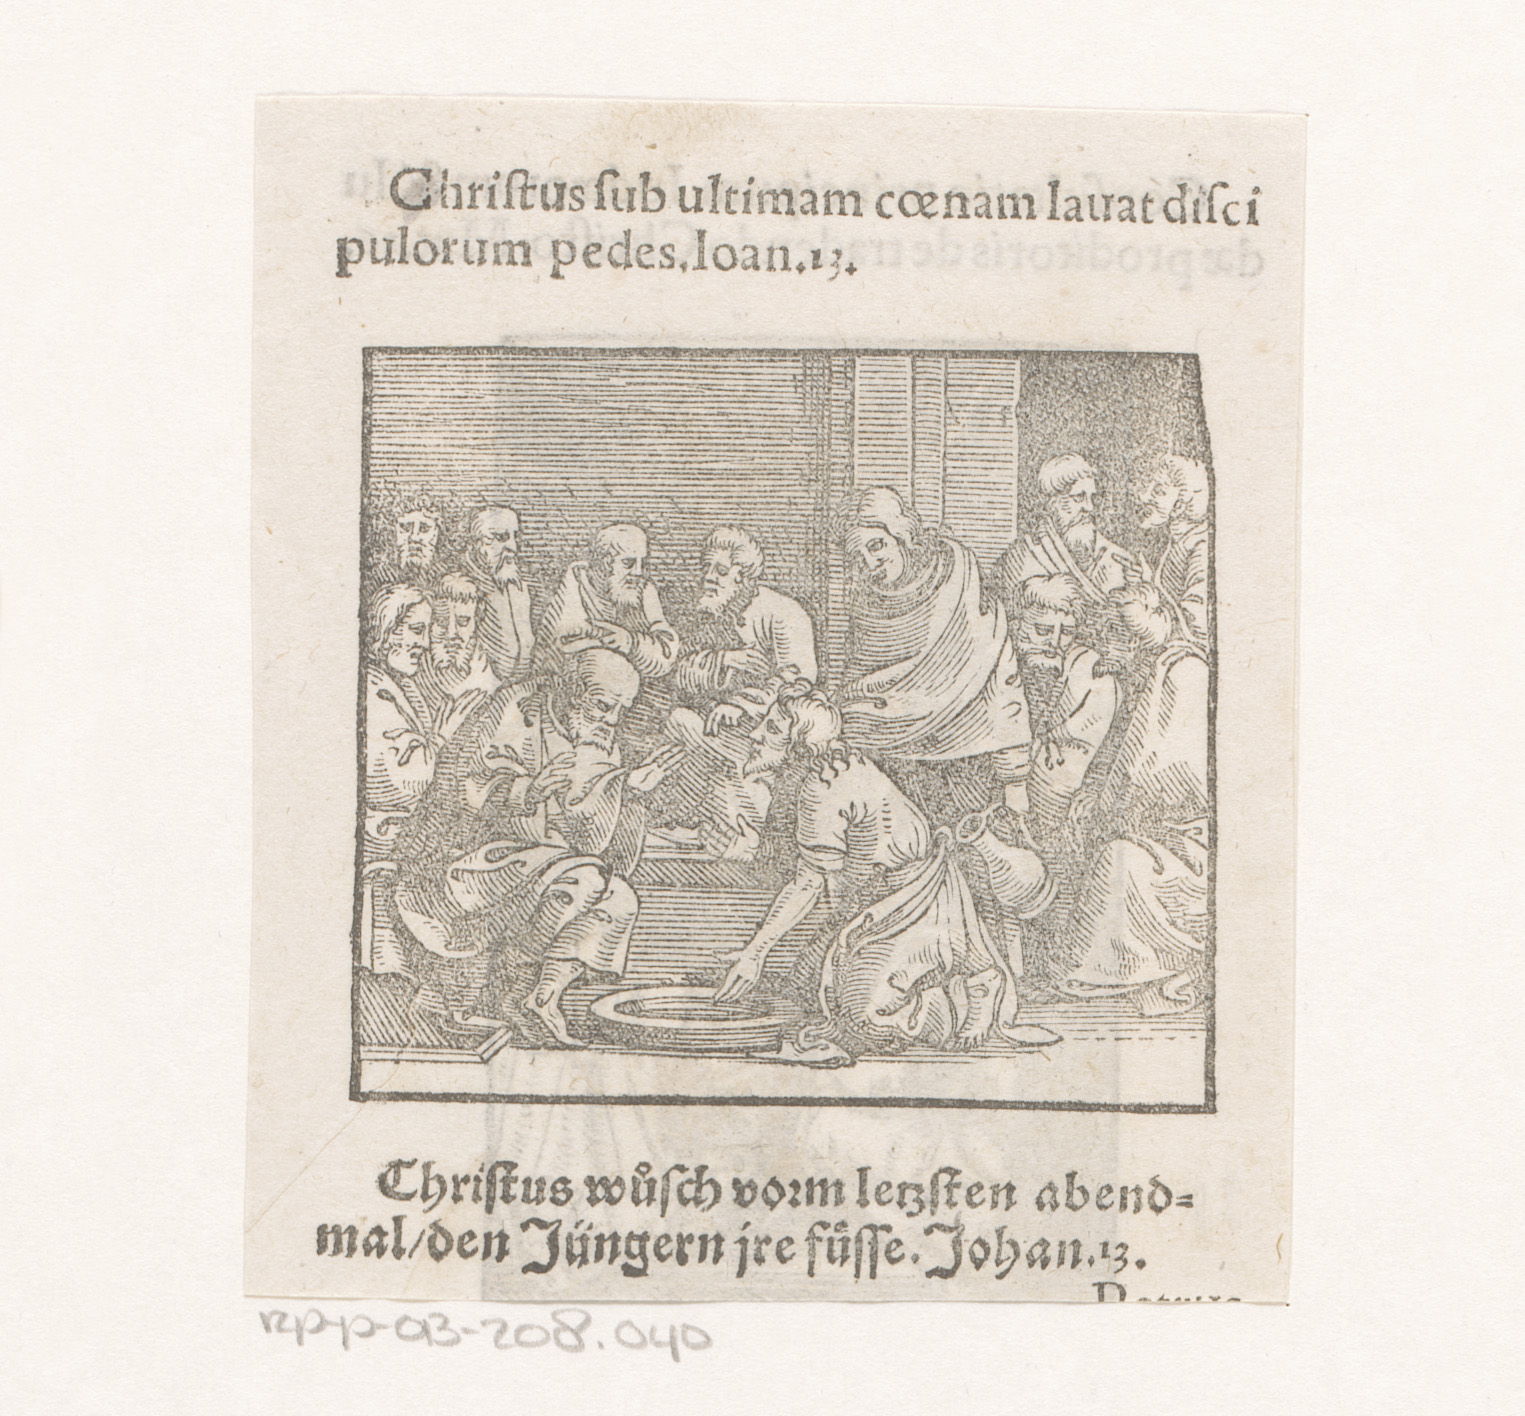 Chriſtus ſub ultimam cœnam lauat diſci
pulorum pedes. Ioan. 13.
Chriſtus wůſch vorm letzſten abend⸗
mal/den Jüngern jre fuͤſſe. Johan. 13.
RP-P-OB-208.040